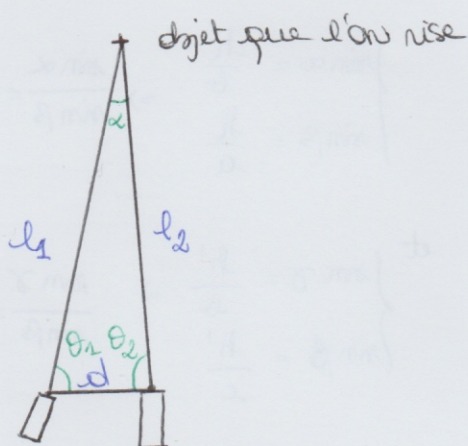 objet que l'on vise
α
l₁ l₂
θ₁ θ₂
d